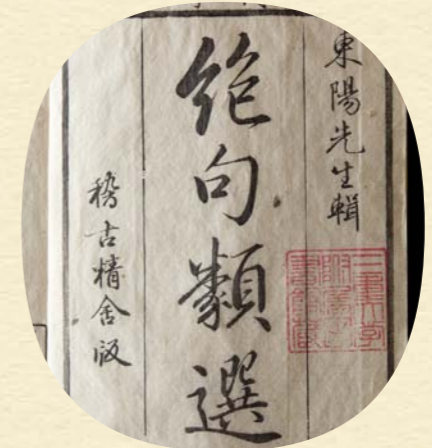 東陽先生輯
絶句類選
稽古精舎版